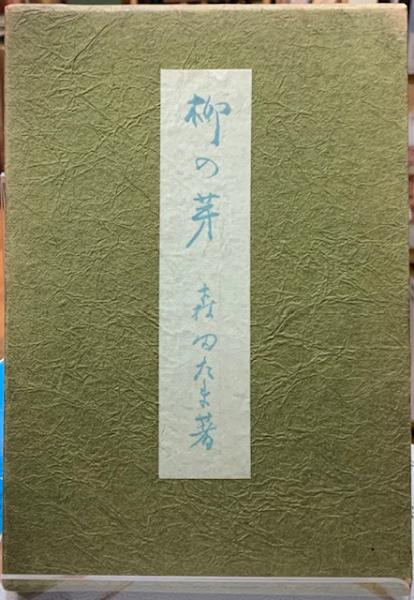 柳の芽 森田たま著